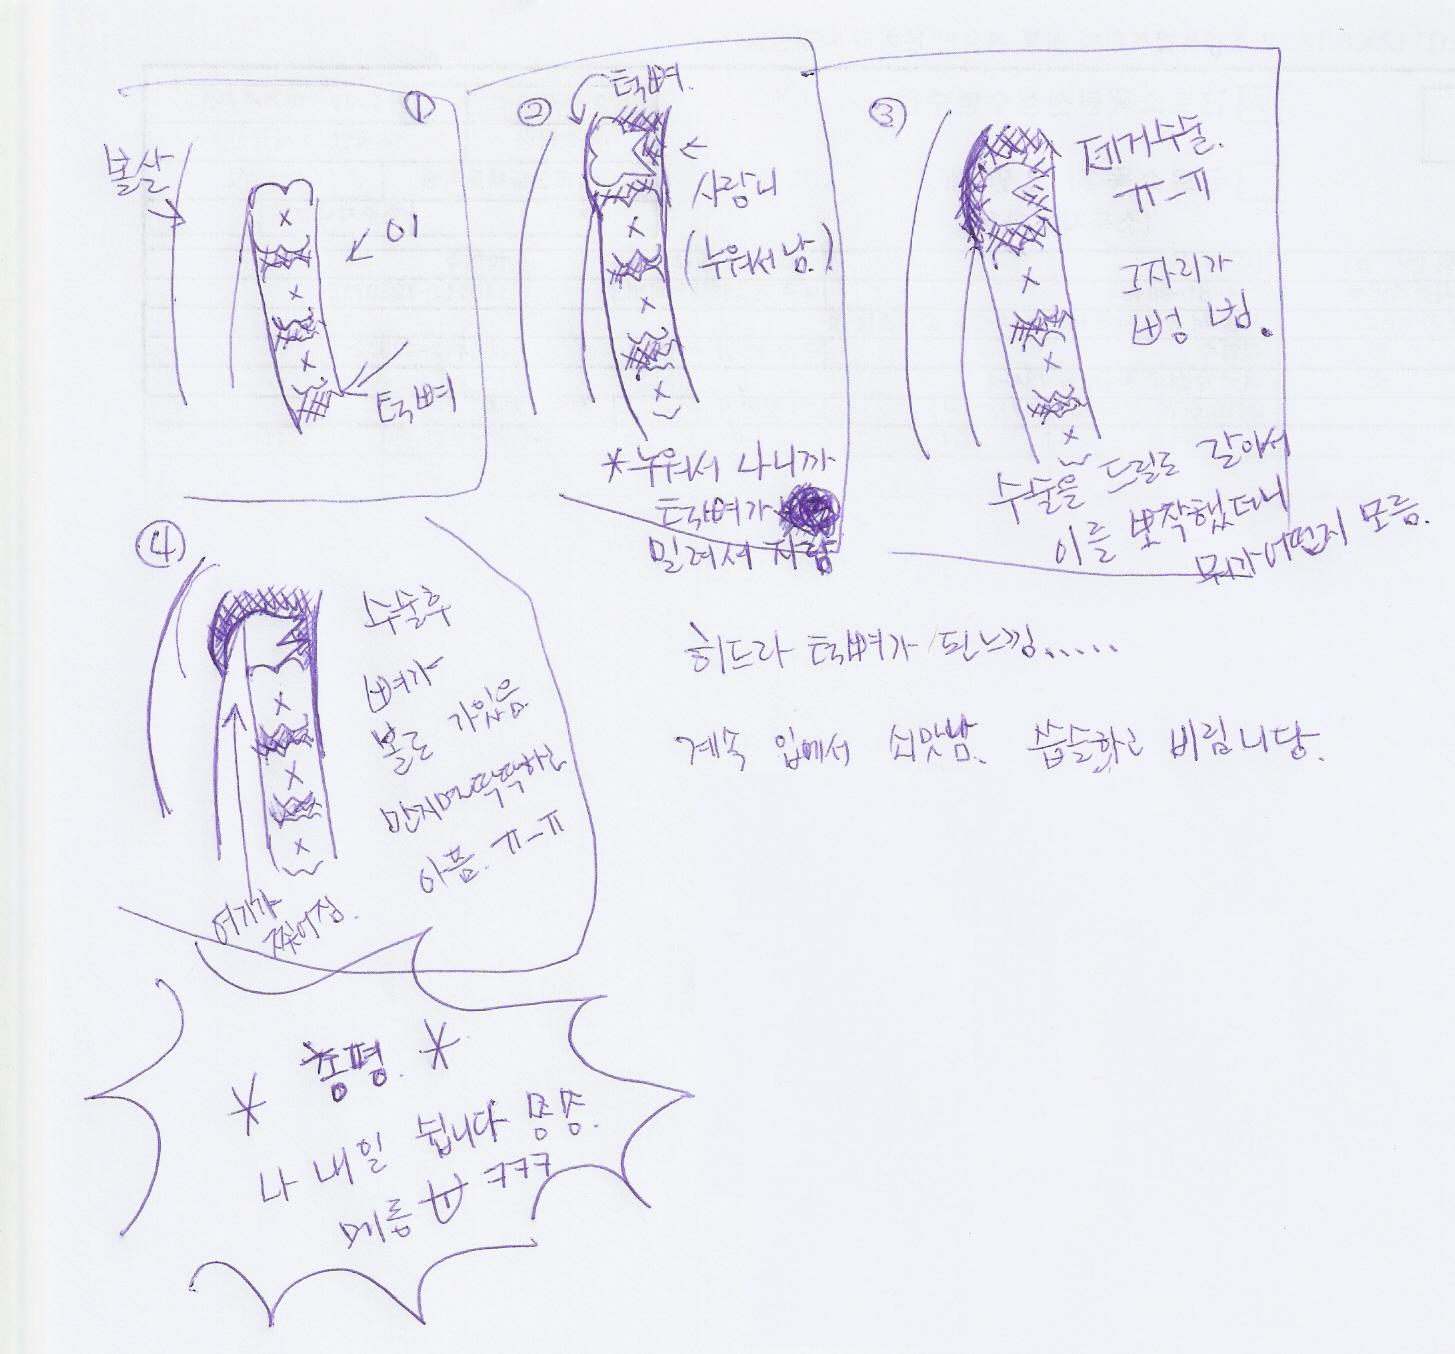 ①
볼살
이
턱뼈
②
턱뼈.
사랑니
(누워서 남.)
*누워서 나니까
턱뼈가
밀려서 자람
③
제거수술.
ㅠ-ㅠ
그자리가
뻥 빔.
수술을 드릴로 갈아서
이를 뽀작했더니
뭐가 어떤지 모름.
④
수술후
뼈가
볼로 가있음
만지면 딱딱하고
아픔. ㅠ-ㅠ
여기가
찢어짐.
히드라 턱뼈가 된느낌.....
계속 입에서 쇠맛남. 씁슬하고 비림니당.
* 총평. *
나 내일 쉽니다 뿅뿅.
메롱 ㅋㅋㅋ